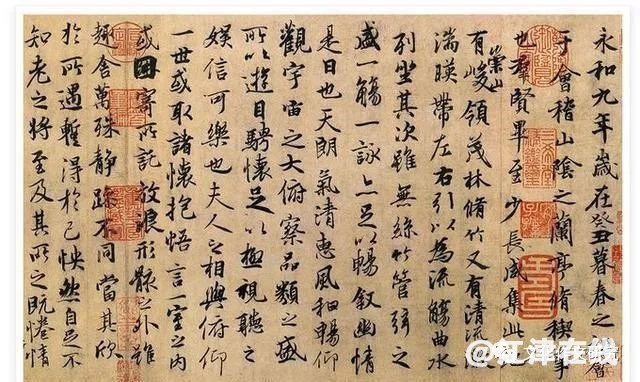 永和九年歲在癸丑暮春之初會
于會稽山陰之蘭亭脩稧事
也羣賢畢至少長咸集此
有崇山峻領茂林脩竹又有清流
湍暎帶左右引以為流觴曲水
列坐其次雖無絲竹管弦之
盛一觴一詠亦足以暢敘幽情
是日也天朗氣清惠風和暢仰
觀宇宙之大俯察品類之盛
所以遊目騁懷足以極視聽之
娛信可樂也夫人之相與俯仰
一世或取諸懷抱悟言一室之內
或因寄所託放浪形骸之外雖
趣舍萬殊靜躁不同當其欣
於所遇蹔得於己怏然自足不
知老之將至及其所之既惓情
@红津在线